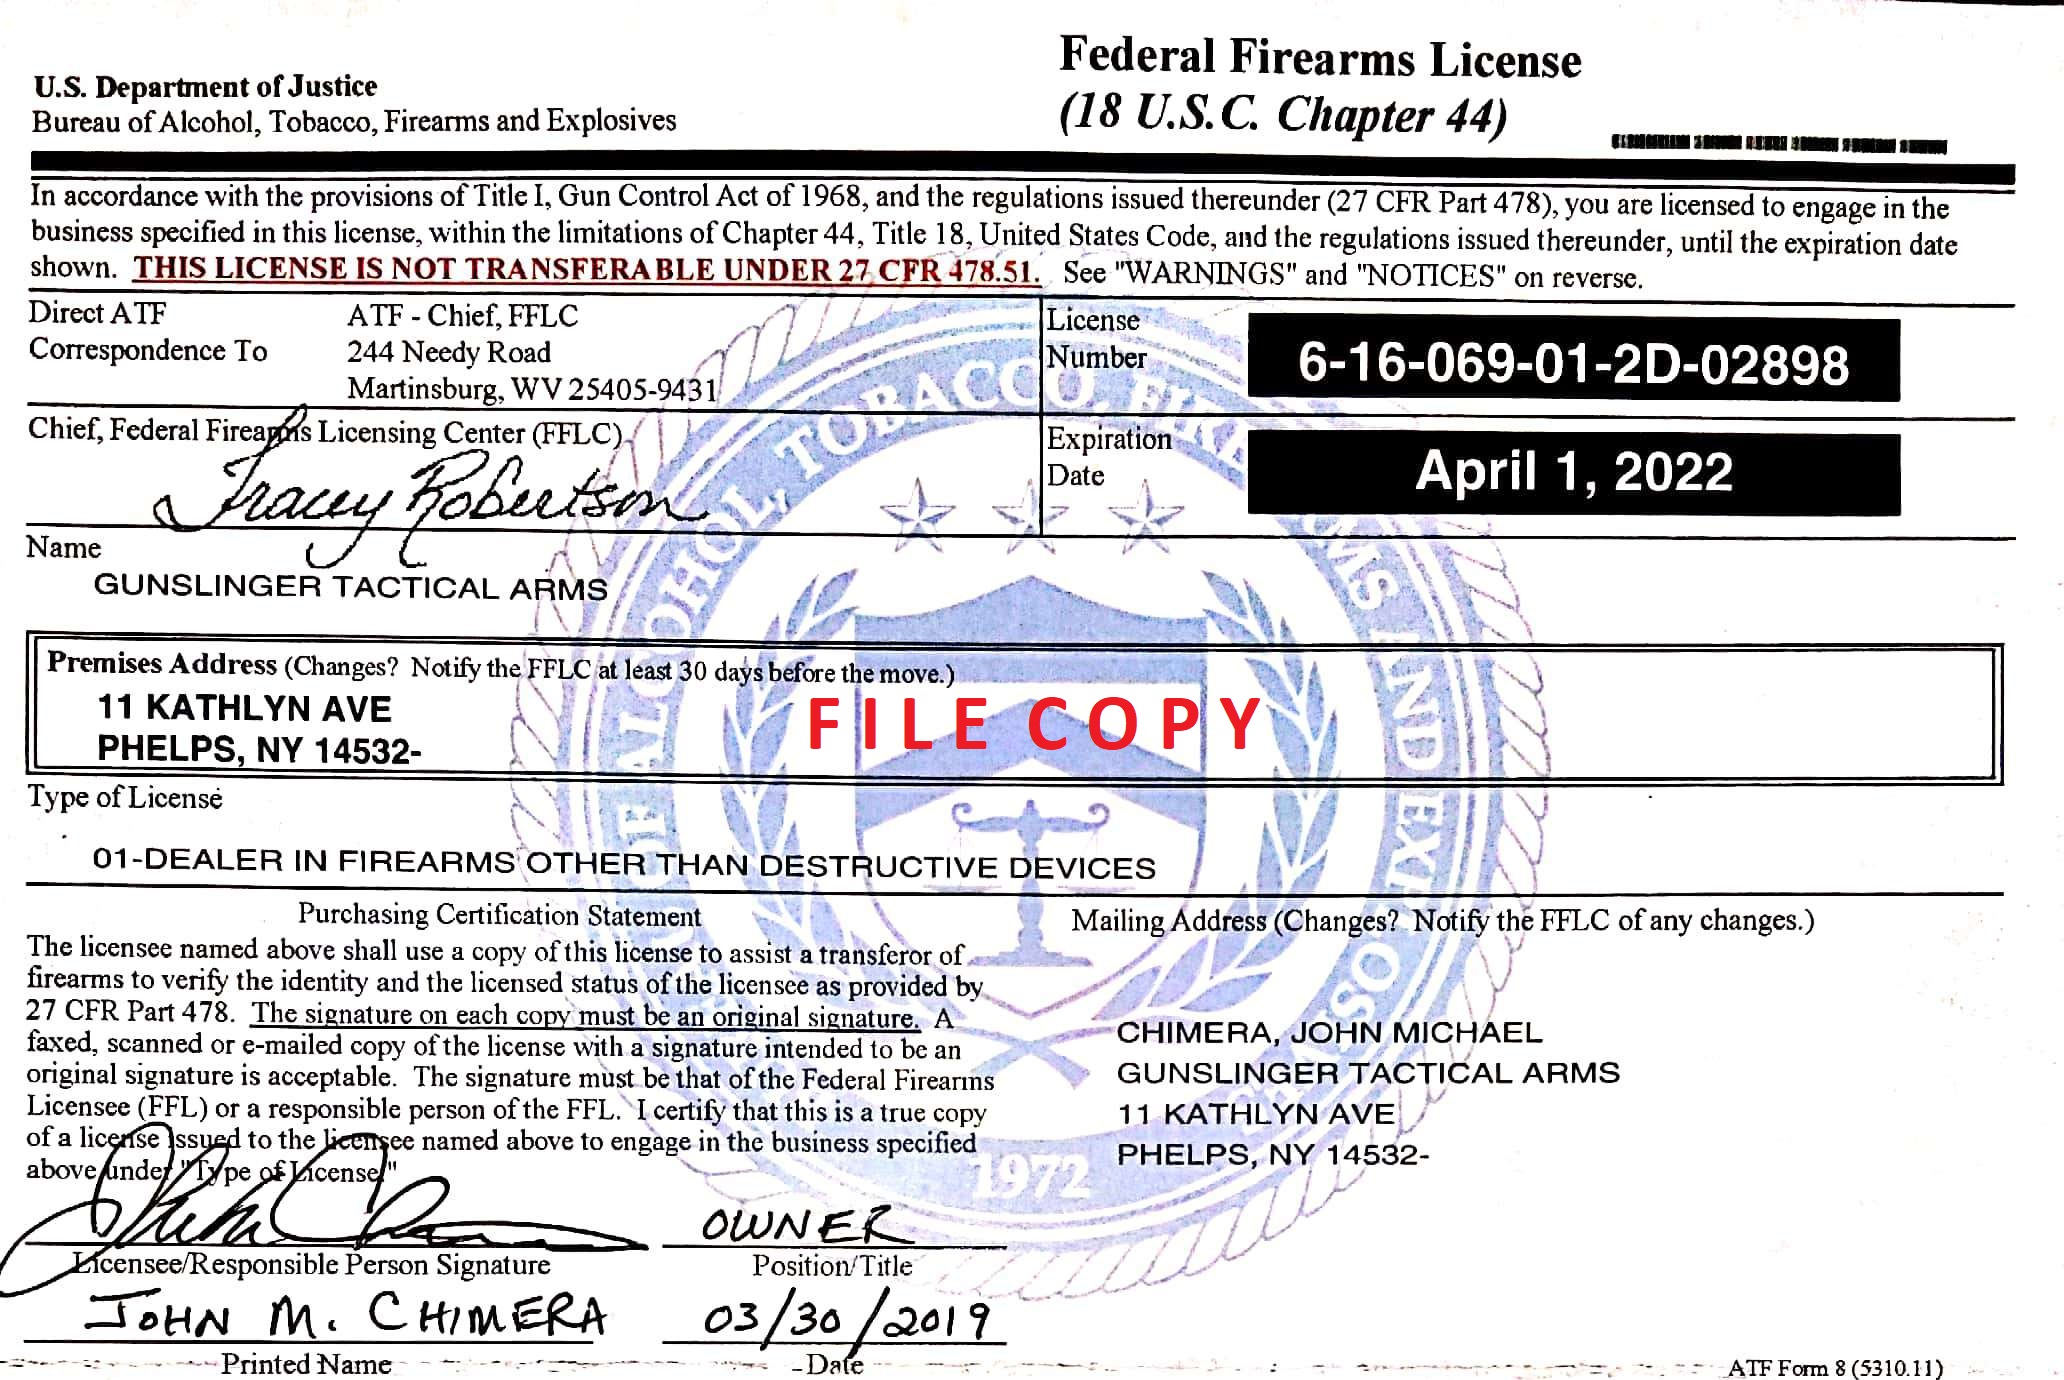 U.S. Department of Justice
Bureau of Alcohol, Tobacco, Firearms and Explosives
Federal Firearms License
(18 U.S.C. Chapter 44)
In accordance with the provisions of Title I, Gun Control Act of 1968, and the regulations issued thereunder (27 CFR Part 478), you are licensed to engage in the
business specified in this license, within the limitations of Chapter 44, Title 18, United States Code, and the regulations issued thereunder, until the expiration date
shown. THIS LICENSE IS NOT TRANSFERABLE UNDER 27 CFR 478.51. See "WARNINGS" and "NOTICES" on reverse.
Direct ATF
Correspondence To
ATF - Chief, FFLC
244 Needy Road
Martinsburg, WV 25405-9431
License
Number
6-16-069-01-2D-02898
Chief, Federal Firearms Licensing Center (FFLC)
Tracey Robertson
Expiration
Date
April 1, 2022
Name
GUNSLINGER TACTICAL ARMS
Premises Address (Changes? Notify the FFLC at least 30 days before the move.)
11 KATHLYN AVE
PHELPS, NY 14532-
FILE COPY
Type of License
01-DEALER IN FIREARMS OTHER THAN DESTRUCTIVE DEVICES
Purchasing Certification Statement
The licensee named above shall use a copy of this license to assist a transferor of
firearms to verify the identity and the licensed status of the licensee as provided by
27 CFR Part 478. The signature on each copy must be an original signature. A
faxed, scanned or e-mailed copy of the license with a signature intended to be an
original signature is acceptable. The signature must be that of the Federal Firearms
Licensee (FFL) or a responsible person of the FFL. I certify that this is a true copy
of a license issued to the licensee named above to engage in the business specified
above under "Type of License."
Mailing Address (Changes? Notify the FFLC of any changes.)
CHIMERA, JOHN MICHAEL
GUNSLINGER TACTICAL ARMS
11 KATHLYN AVE
PHELPS, NY 14532-
1972
OWNER
Licensee/Responsible Person Signature
Position/Title
JOHN M. CHIMERA
03/30/2019
Printed Name
Date
ATF Form 8 (5310.11)